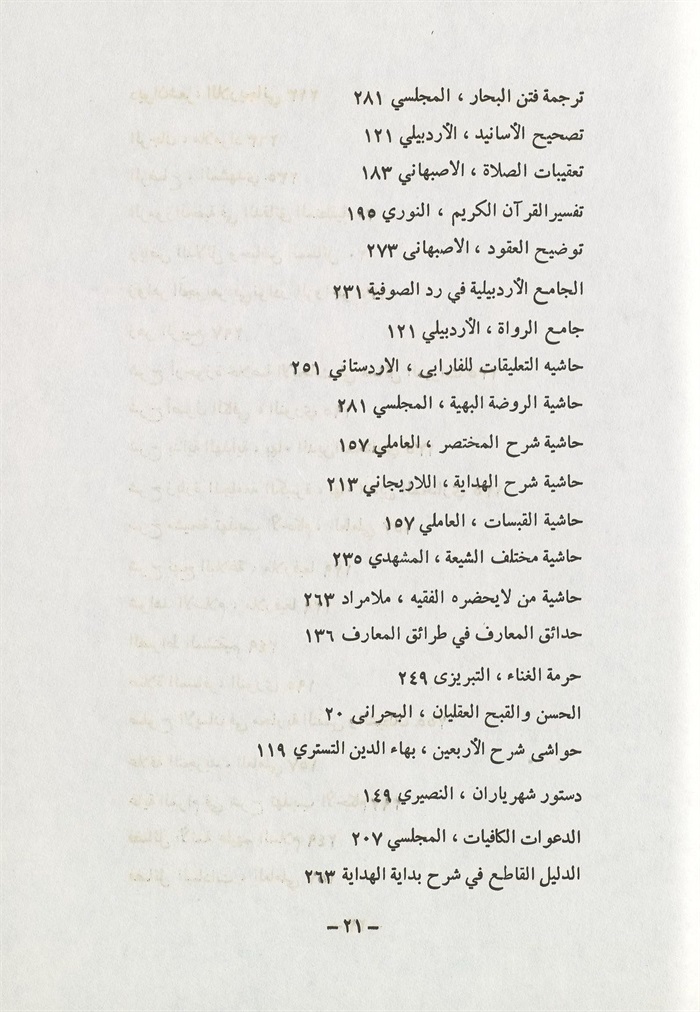 ترجمة فتن البحار ، المجلسي ٢٨١
تصحيح الأسانيد ، الأردبيلي ١٢١
تعقيبات الصلاة ، الأصبهاني ١٨٣
تفسير القرآن الكريم ، النوري ١٩٥
توضيح العقود ، الأصبهانى ٢٧٣
الجامع الأردبيلية في رد الصوفية ٢٣١
جامع الرواة ، الأردبيلي ١٢١
حاشيه التعليقات للفارابى ، الاردستاني ٢٥١
حاشية الروضة البهية ، المجلسي ٢٨١
حاشية شرح المختصر ، العاملي ١٥٧
حاشية شرح الهداية ، اللاريجاني ٢١٣
حاشية القبسات ، العاملي ١٥٧
حاشية مختلف الشيعة ، المشهدي ٢٣٥
حاشية من لايحضره الفقيه ، ملامراد ٢٦٣
حدائق المعارف في طرائق المعارف ١٣٦
حرمة الغناء ، التبريزى ٢٤٩
الحسن والقبح العقليان ، البحرانى ٢٠
حواشى شرح الأربعين ، بهاء الدين التستري ١١٩
دستور شهرياران ، النصيري ١٤٩
الدعوات الكافيات ، المجلسي ٢٠٧
الدليل القاطع في شرح بداية الهداية ٢٦٣
– ٢١ –